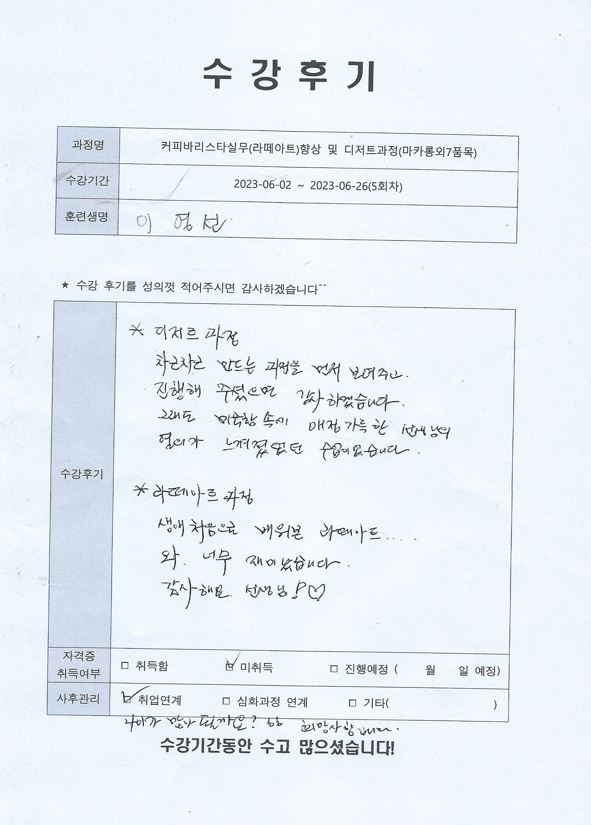 수강후기
과정명 커피바리스타실무(라떼아트)향상 및 디저트과정(마카롱외7품목)
수강기간 2023-06-02 ~ 2023-06-26(5회차)
훈련생명 이영선
★ 수강 후기를 성의껏 적어주시면 감사하겠습니다^^
수강후기
* 디저트 과정
차근차근 만드는 과정을 먼저 보여주고
진행해 주셨으면 감사하겠습니다.
그래도 속에 애정 가득한 선생님의
열의가 느껴졌었던 수업이었습니다.
* 라떼아트 과정
생애 처음으로 배워본 라떼아트....
와. 너무 재미났습니다.
감사해요 선생님!♡
자격증 취득여부 □ 취득함 ☑ 미취득 □ 진행예정 ( 월 일 예정)
사후관리 ☑ 취업연계 □ 심화과정 연계 □ 기타( )
나이가 많아 될까요? ㅎㅎ 희망사항입니다.
수강기간동안 수고 많으셨습니다!